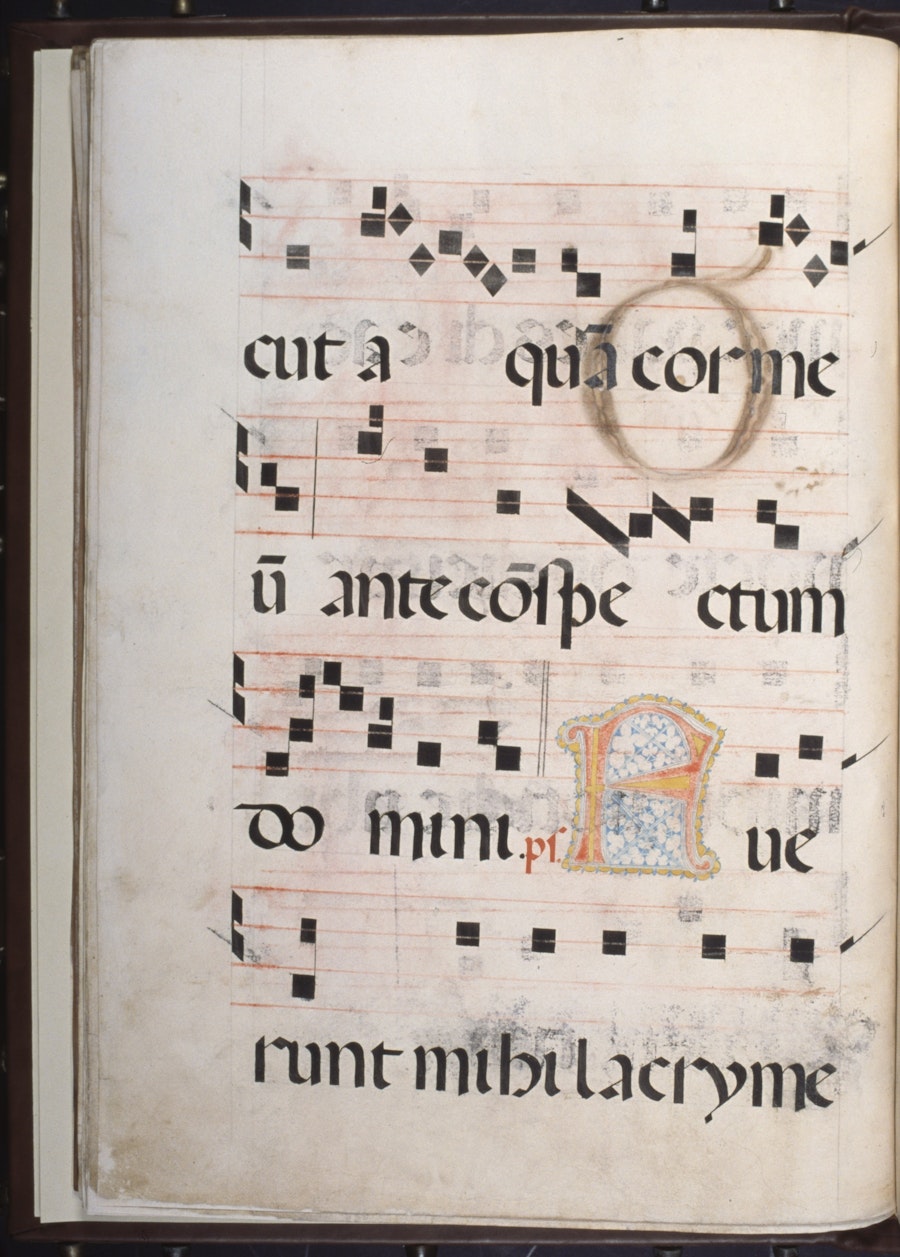 cut a quā cor me
ū ante cōspe ctum
do mini. ps. F ue
runt mihi lacryme